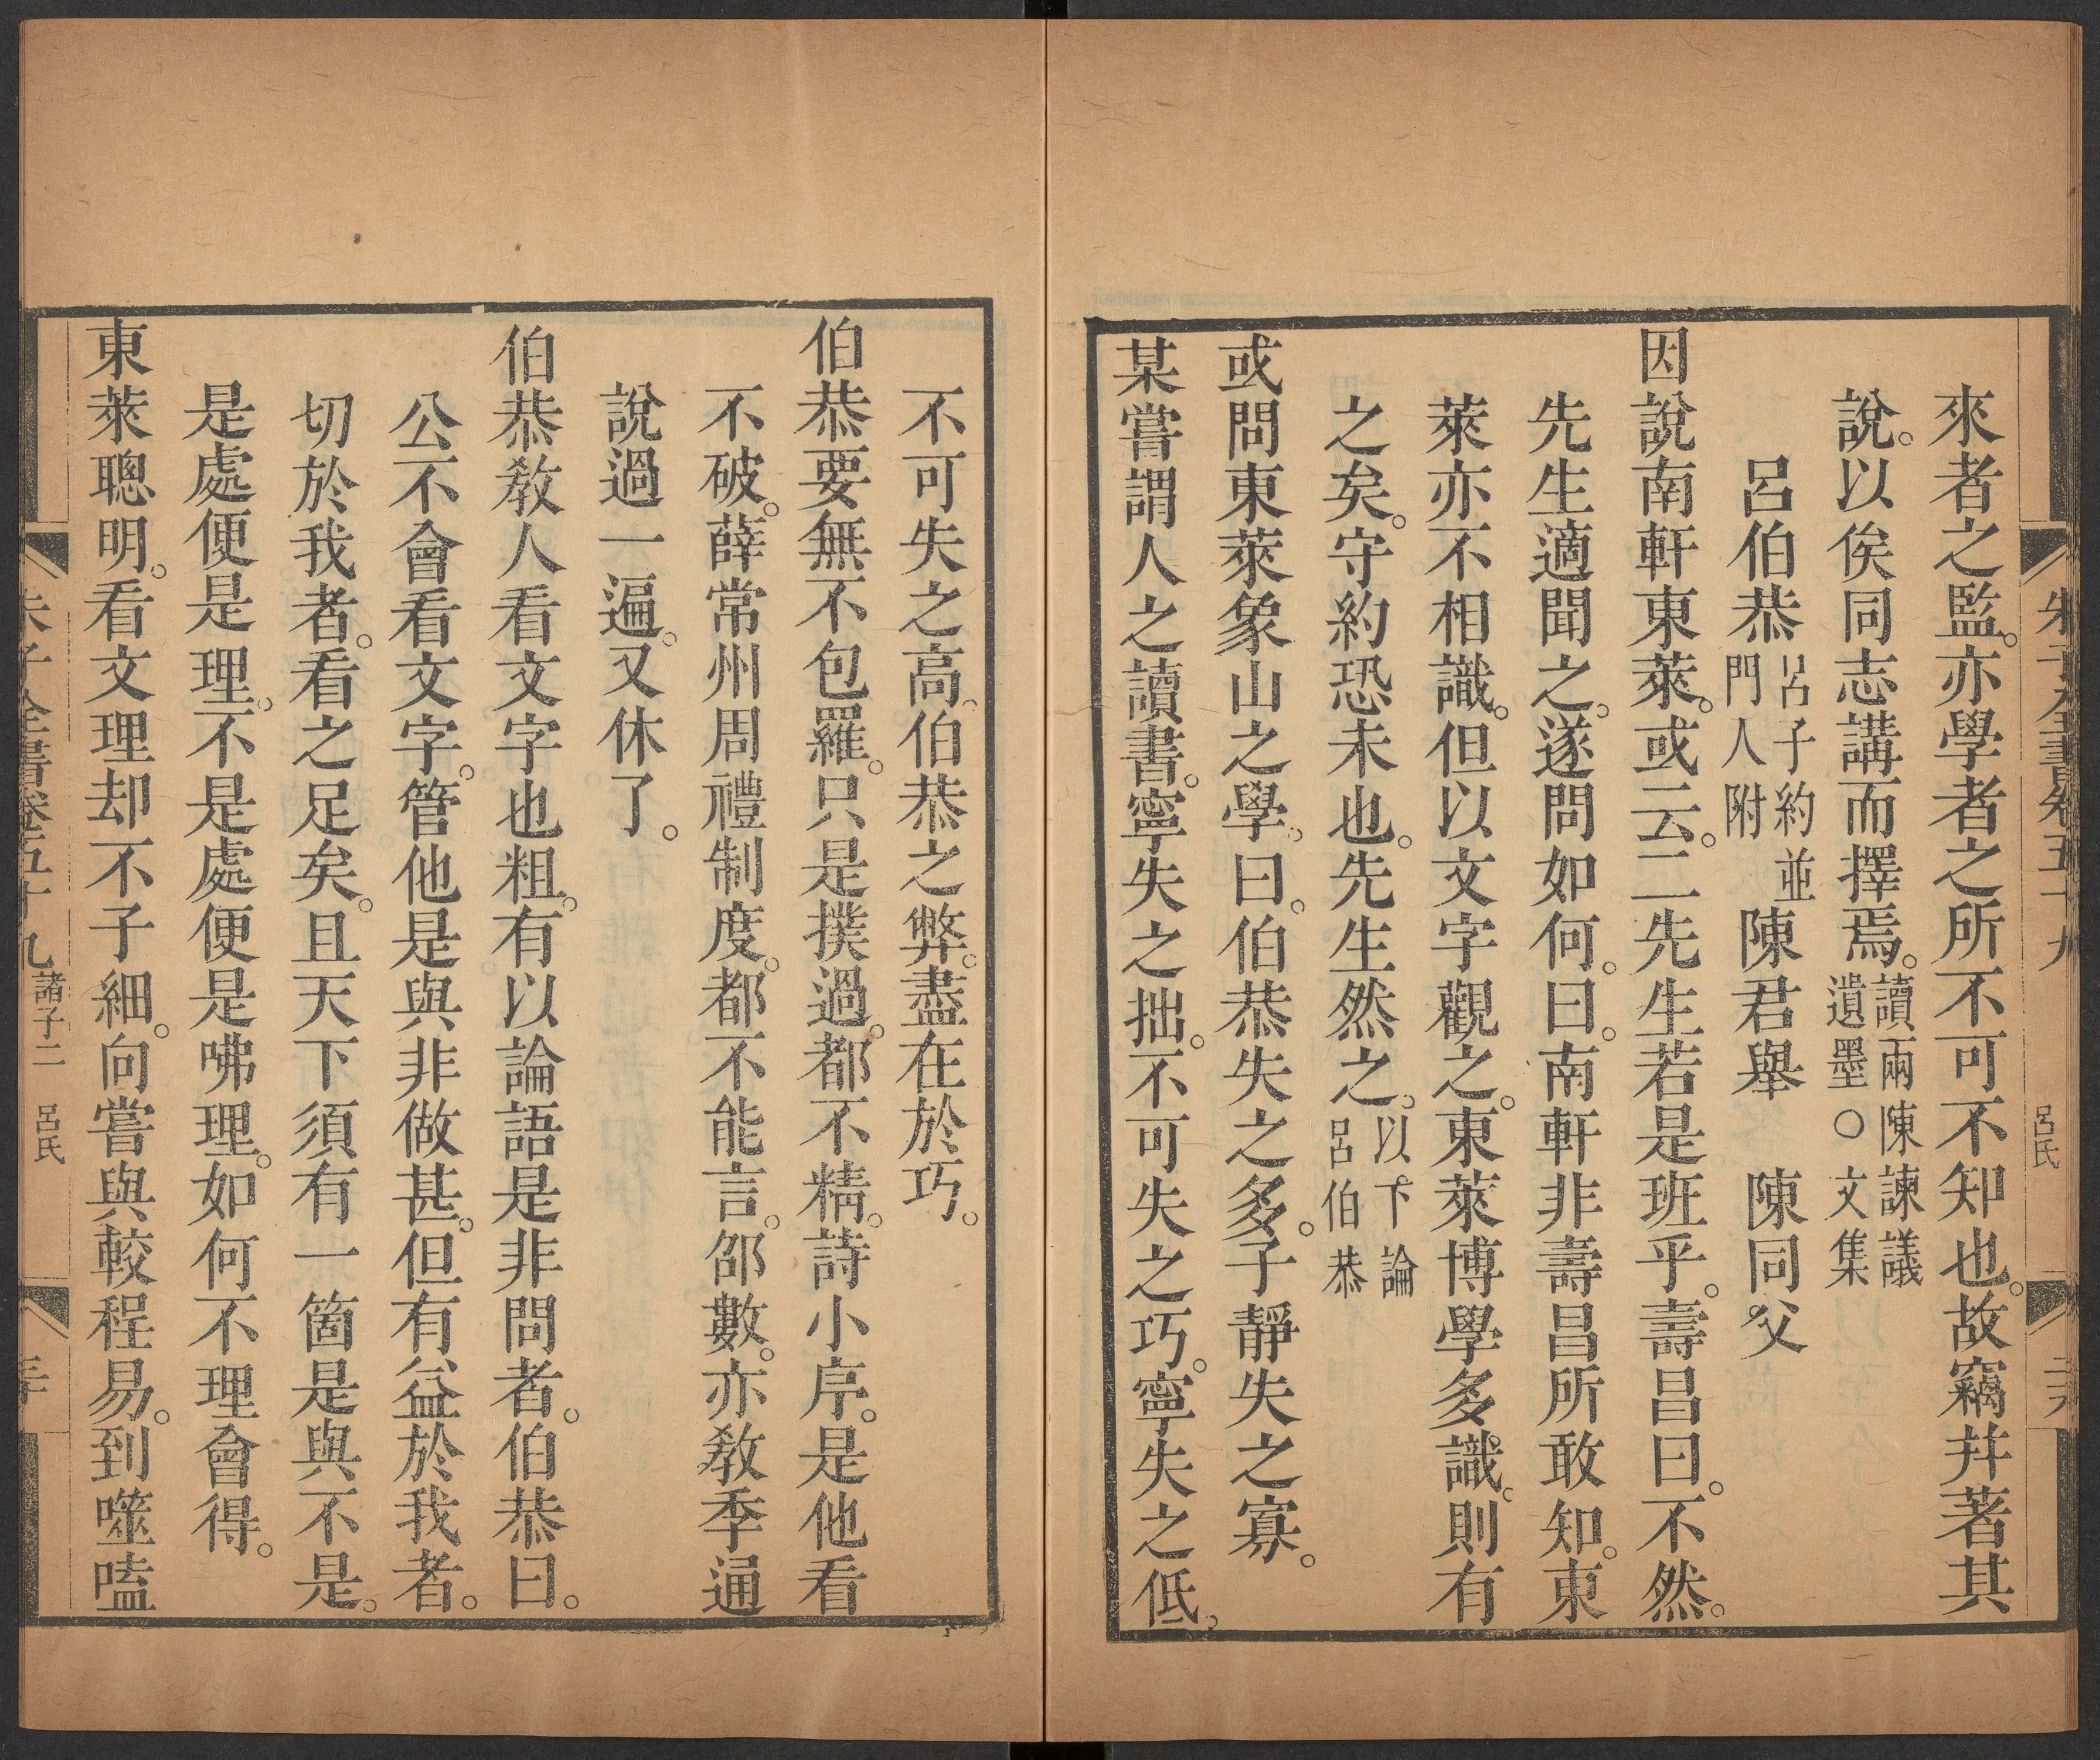 來者之監。亦學者之所不可不知也。故竊幷著其
說。以俟同志講而擇焉。讀兩陳諫議遺墨○文集
呂伯恭呂子約並門人附 陳君舉 陳同父
因說南軒東萊。或云。二先生若是班乎。壽昌曰。不然。
先生適聞之。遂問如何。曰。南軒非壽昌所敢知。東
萊亦不相識。但以文字觀之。東萊博學多識。則有
之矣。守約恐未也。先生然之。以下論呂伯恭
或問東萊象山之學。曰。伯恭失之多。子靜失之寡。
某嘗謂人之讀書。寧失之拙。不可失之巧。寧失之低。
不可失之高。伯恭之弊。盡在於巧。
伯恭要無不包羅。只是撲過。都不精。詩小序。是他看
不破。薛常州周禮制度。都不能言。邵數。亦教季通
說過一遍。又休了。
伯恭教人看文字也粗。有以論語是非問者。伯恭曰。
公不會看文字。管他是與非做甚。但有益於我者。
切於我者。看之足矣。且天下須有一箇是與不是。
是處便是理。不是處便是咈理。如何不理會得。
東萊聰明。看文理却不子細。向嘗與較程易。到噬嗑
朱子全書卷五十九 諸子二 呂氏